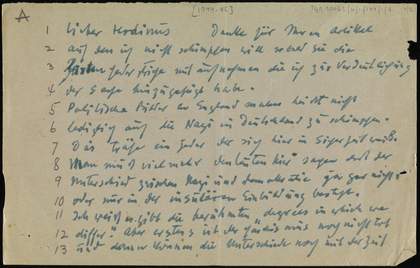 A [1944-45]
1 Lieber Herodinus Danke für Ihren Artikel
2 auf den ich nicht schimpfen will sobald Sie die
3 jeder Folge mit aufnehmen die ich zur Verdeutlichung
4 der Sache hinzugefügt habe.
5 Politische Bilder in England machen heisst nicht
6 lediglich auf die Nazi in Deutschland zu schimpfen.
7 Das Träfe ein jeder der sich hier in Sicherheit weiss.
8 Man muss vielmehr den Leuten hier sagen dass der
9 Unterschied zwischen Nazi und Demokratie gar nicht
10 oder nur in der insulären Einbildung besteht.
11 Ich weiss es gibt die berühmten "degrees in which we
12 differ". Aber erstens ist der noch nicht tot
13 und dann können die Unterschiede noch mit der Zeit